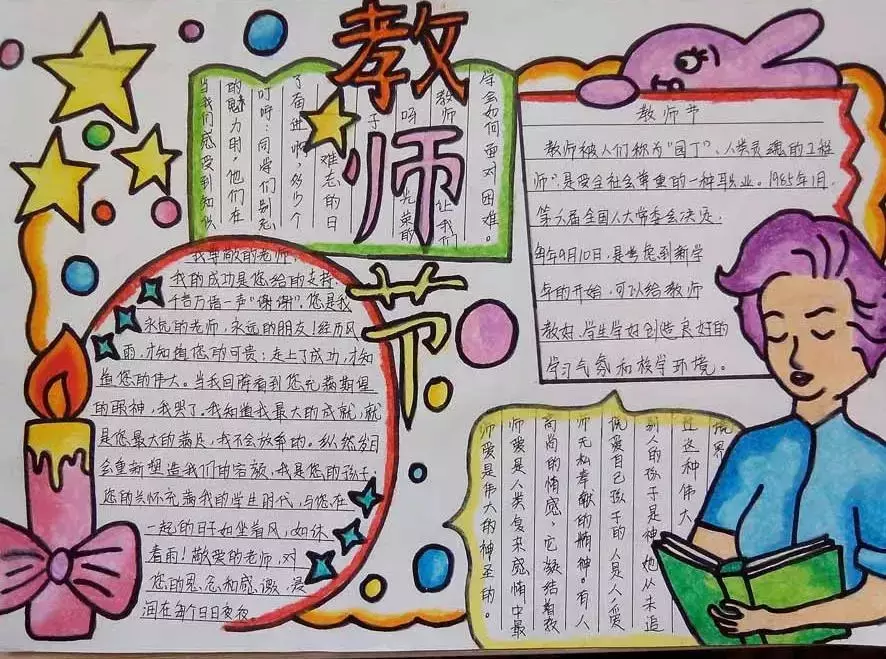 教师节
当我们感受到知识
的魅力时，他们在
叮咛：同学们别忘
了奋进啊，多少个
难志的日
子
呀
教师
光荣的
让我们
学会如何面对困难。
教师节
教师被人们称为"园丁"、人类灵魂的工程
师"，是受全社会尊重的一种职业。1985年1月，
第六届全国人大常委会决定，
每年9月10日，是考虑到新学
年的开始，可以给教师
教好，学生学好创造良好的
学习气氛和校学环境。
我尊敬的老师
我的成功是您给的支持，
千言万语一声"谢谢"，您是我
永远的老师，永远的朋友！经历风
雨，才知道您的可贵；走上了成功，才知
道您的伟大。当我回眸看到您充满期望
的眼神，我哭了。我知道我最大的成就，就
是您最大的满足，我不会放弃的。纵然岁月
会重新塑造我们的容颜，我是您的孩子；
您的关怀充满我的学生时代，与您在
一起的日子如坐着风，如沐
着雨！敬爱的老师，对
您的思念和感激，浸
润在每个日日夜夜。
师爱是伟大的神圣的。
师爱是人类复杂感情中最
高尚的情感，它凝结着教
师无私奉献的精神。有人
说爱自己孩子的人是人，爱
别人的孩子是神，她从未追
过这种伟大
境界